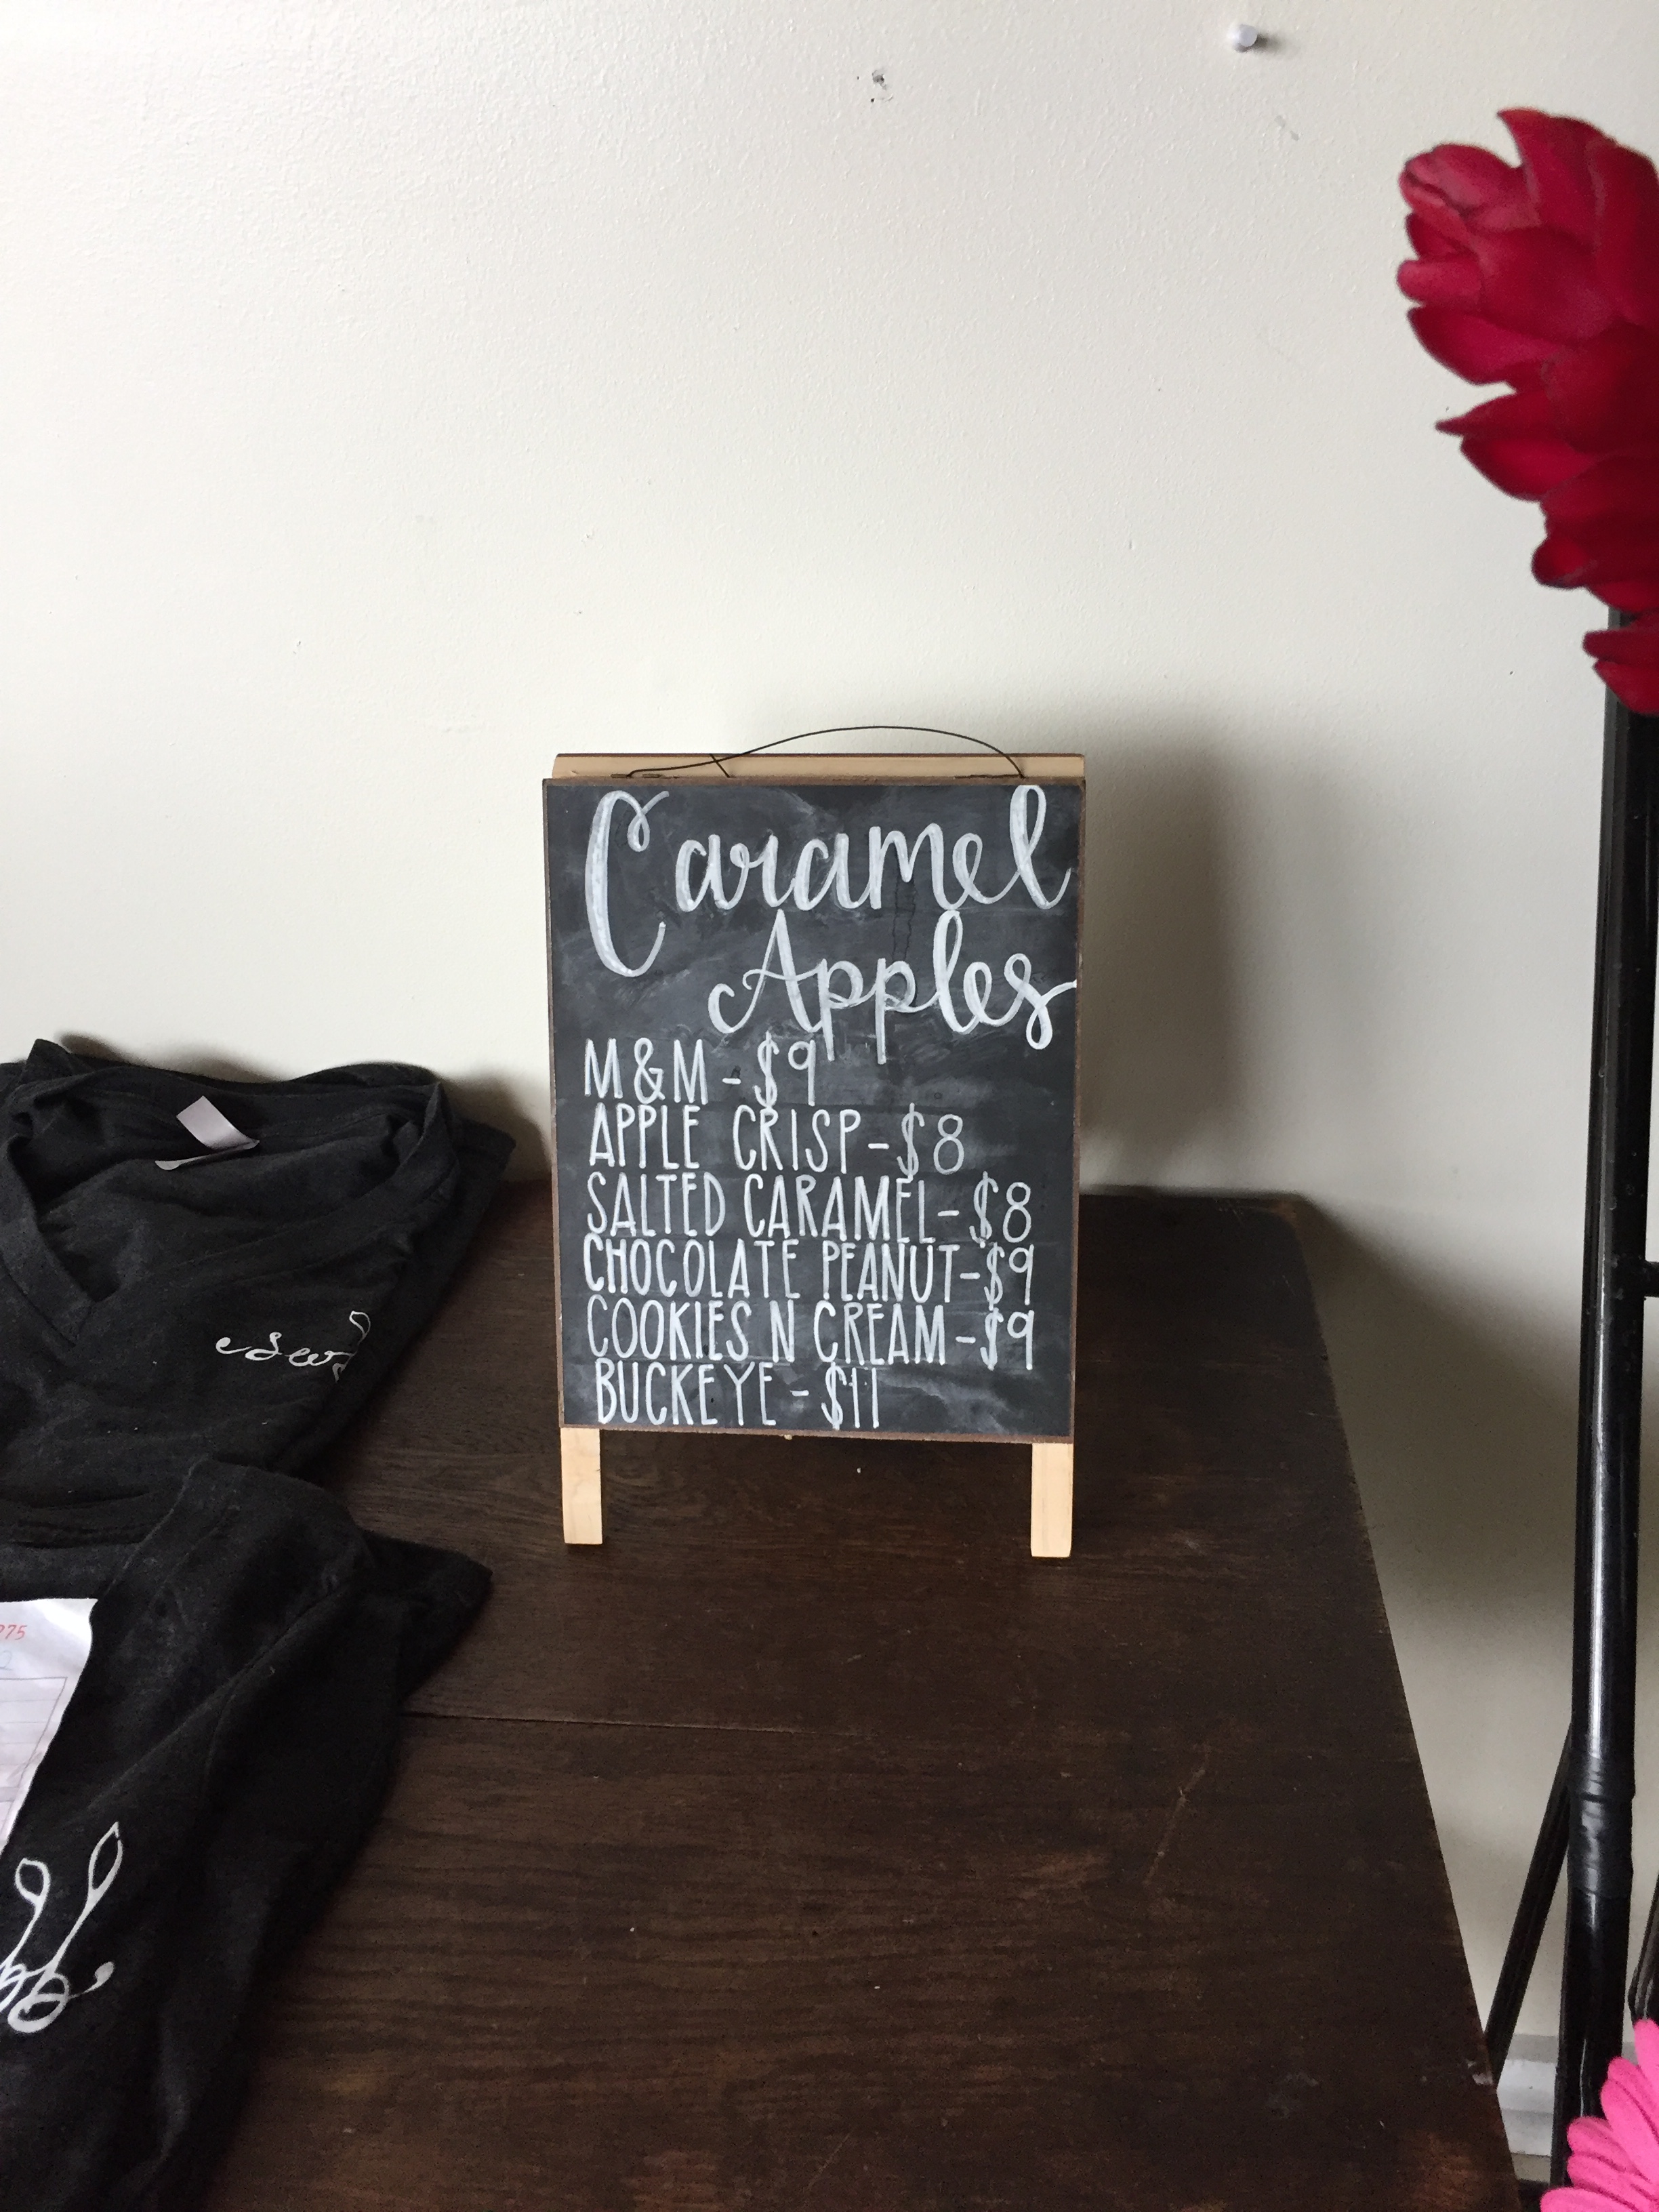 Caramel
Apples
M&M - $9
APPLE CRISP - $8
SALTED CARAMEL - $8
CHOCOLATE PEANUT - $9
COOKIES N CREAM - $9
BUCKEYE - $11